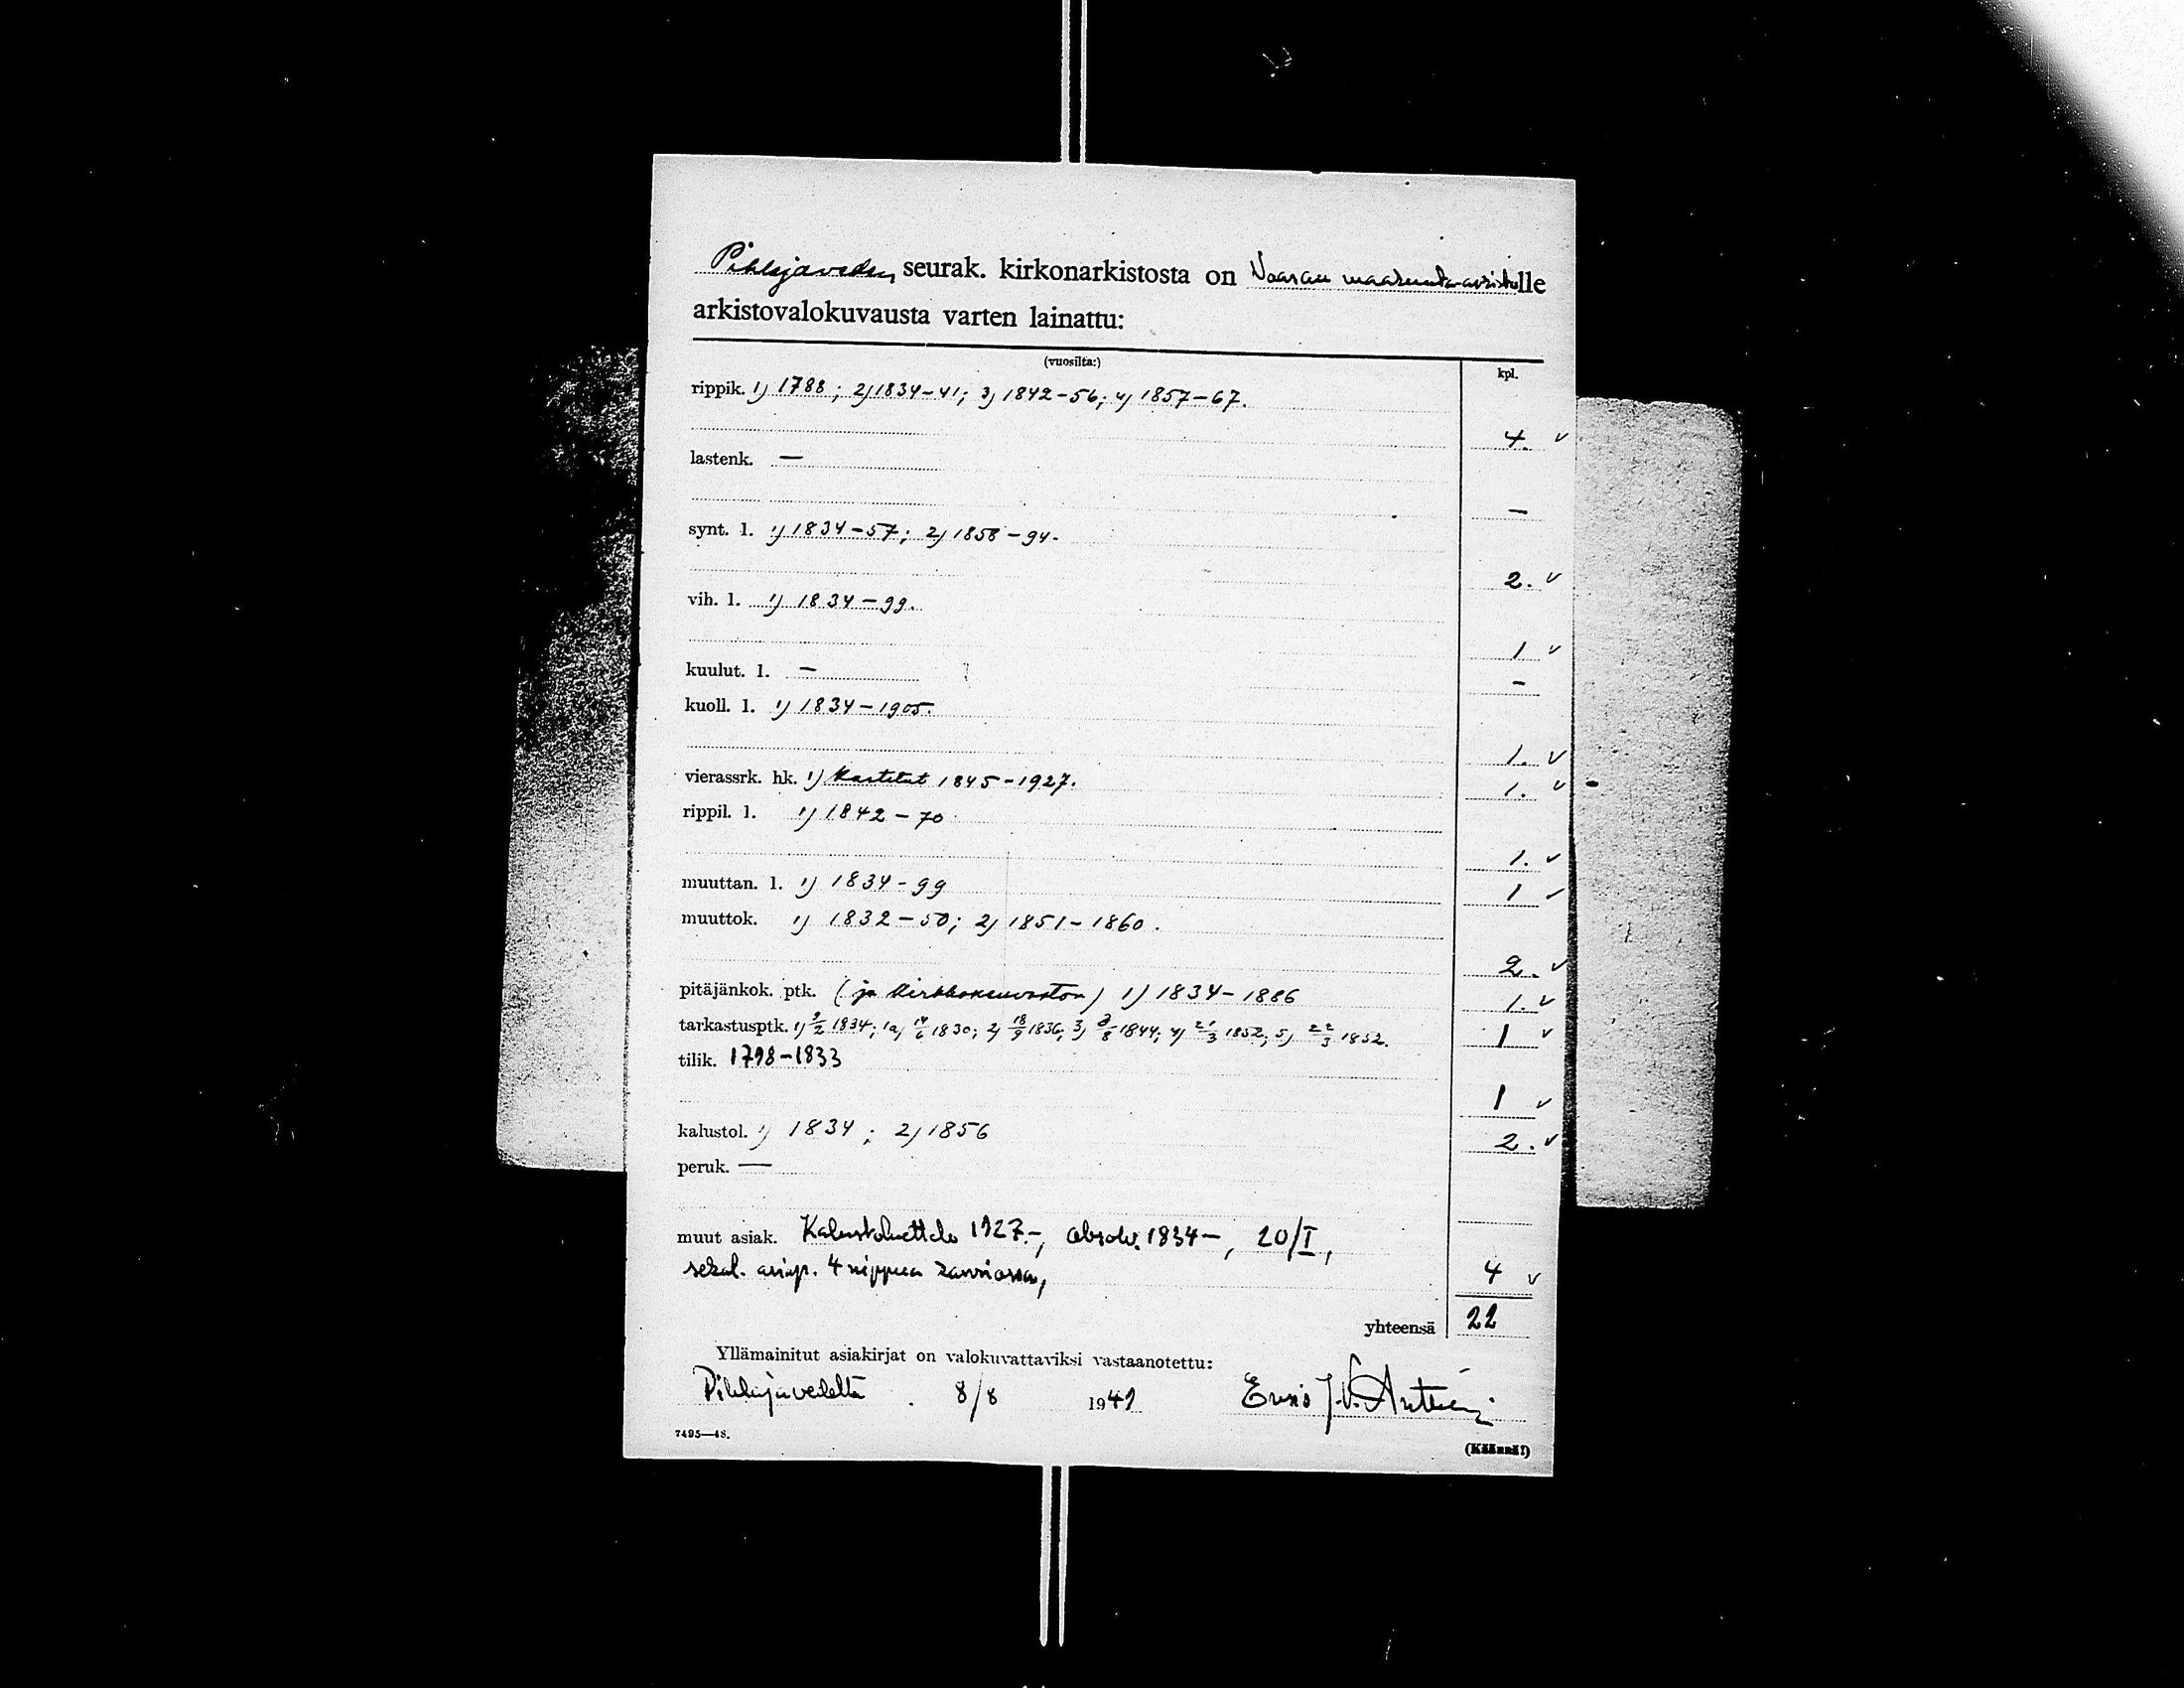 Pihlajaveden seurak. kirkonarkistosta on Vaasan maakunta-arkistolle
arkistovalokuvausta varten lainattu:
(vuosilta:)
kpl.
rippik. 1) 1788; 2) 1834-41; 3) 1842-56; 4) 1857-67.
4. v
lastenk. —
—
synt. l. 1) 1834-57; 2) 1858-94.
2. v
vih. l. 1) 1834-99.
1 v
kuulut. l. —
-
kuoll. l. 1) 1834-1905.
1. v
vierassrk. hk. 1) Kastetut 1845-1927.
1. v
rippil. l. 1) 1842-70
1. v
muuttan. l. 1) 1834-99
1 v
muuttok. 1) 1832-50; 2) 1851-1860.
2. v
pitäjänkok. ptk. (ja kirkkoneuvoston) 1) 1834-1886
1. v
tarkastusptk. 1) 9/2 1834; 1a) 14/6 1830; 2) 18/9 1836; 3) 8/8 1844; 4) 21/3 1852; 5) 22/3 1852.
1 v
tilik. 1798-1833
1 v
kalustol. 1) 1834; 2) 1856
2. v
peruk. —
muut asiak. Kalustoluettelo 1927-, absolv. 1834-, 20/I,
sekal. asiap. 4 nippua
4 v
yhteensä 22
Yllämainitut asiakirjat on valokuvattaviksi vastaanotettu:
Pihlajavedeltä. 8/8 1949
7495—48.
(Käännä!)